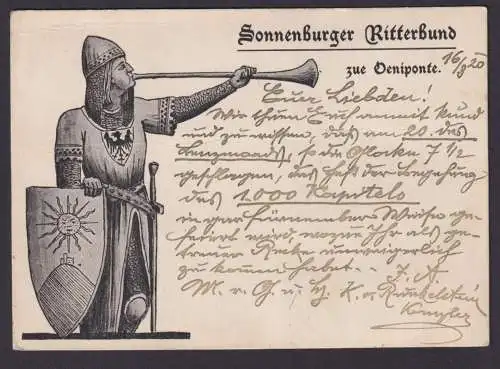 Sonnenburger Ritterbund
zue Oeniponte. 16/3 20
Euer Liebden!
Wir thuen Euch anmit kund
und zu wissen, daß am 20. des
Lenzmonds, so die Glocke 7 1/2
geschlagen, das Fest der Begehung
des 1000 Kapitels
in gar fürnember Weise ge-
feiert wird, wozu Ihr als ge-
treuer Recke unweigerlich
zu kommen habet. - -
J. A.
M. v. G. u. H. K. v. Runkelstein
Kanzler